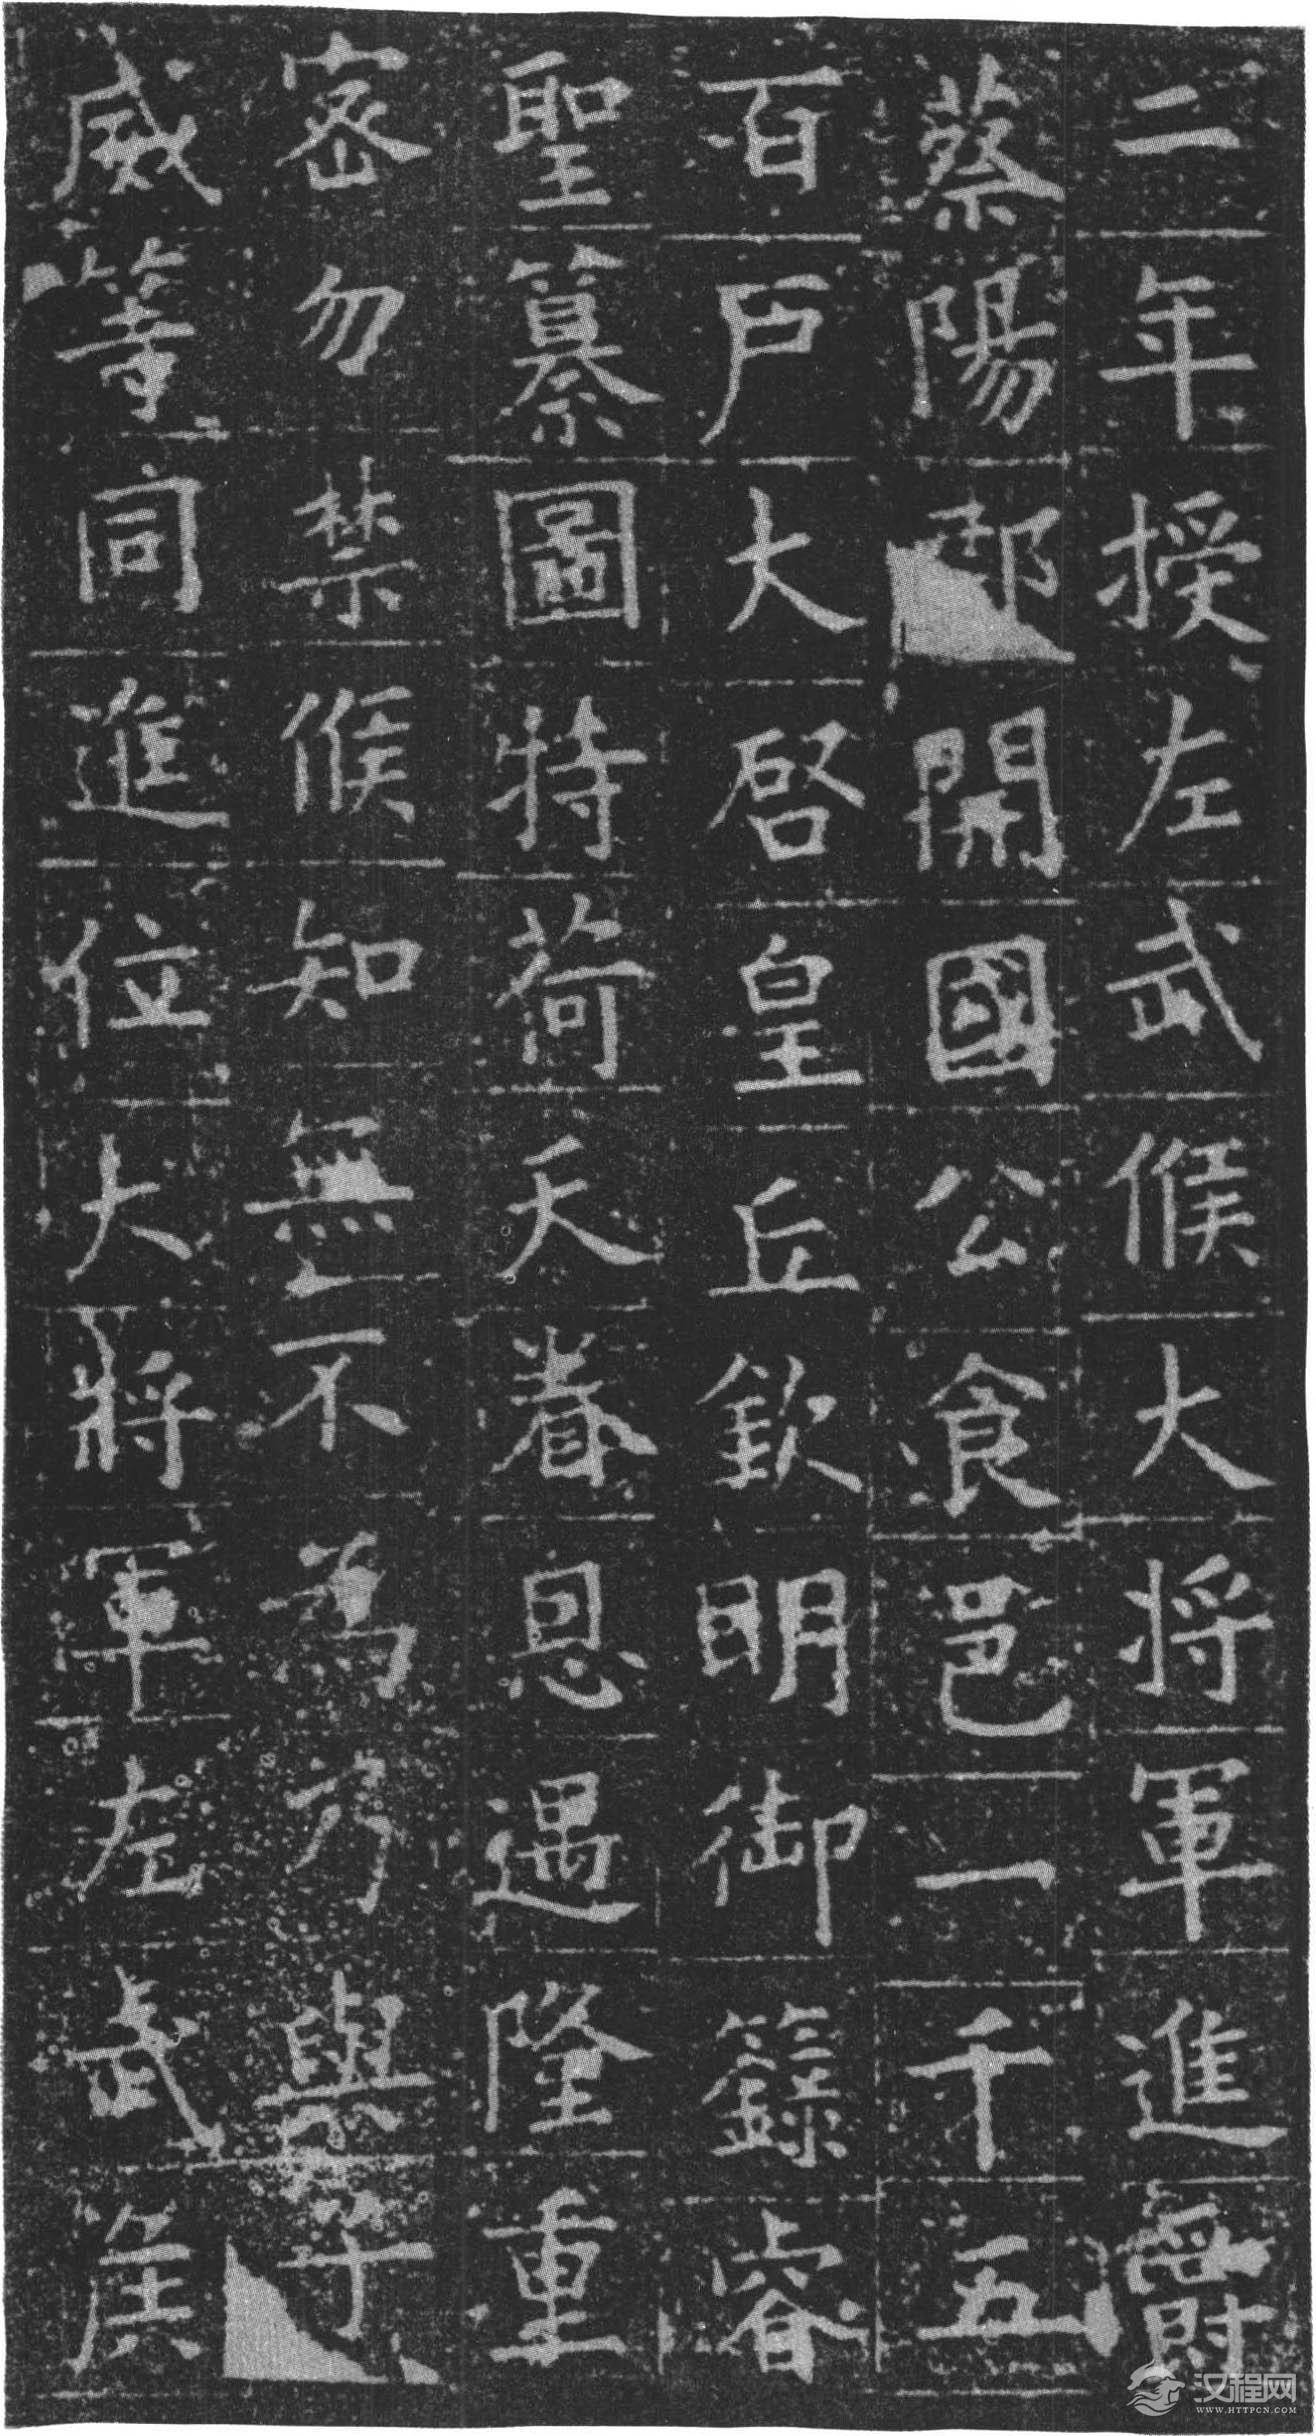 二年授左武候大将軍進爵
蔡陽郡開國公食邑一千五
百戸大啓皇丘欽明御籙睿
聖纂圖特荷天眷恩遇隆重
密勿禁候知無不為乃與宇
威等同進位大將軍左武侯
汉程网
WWW.HTTPCN.COM